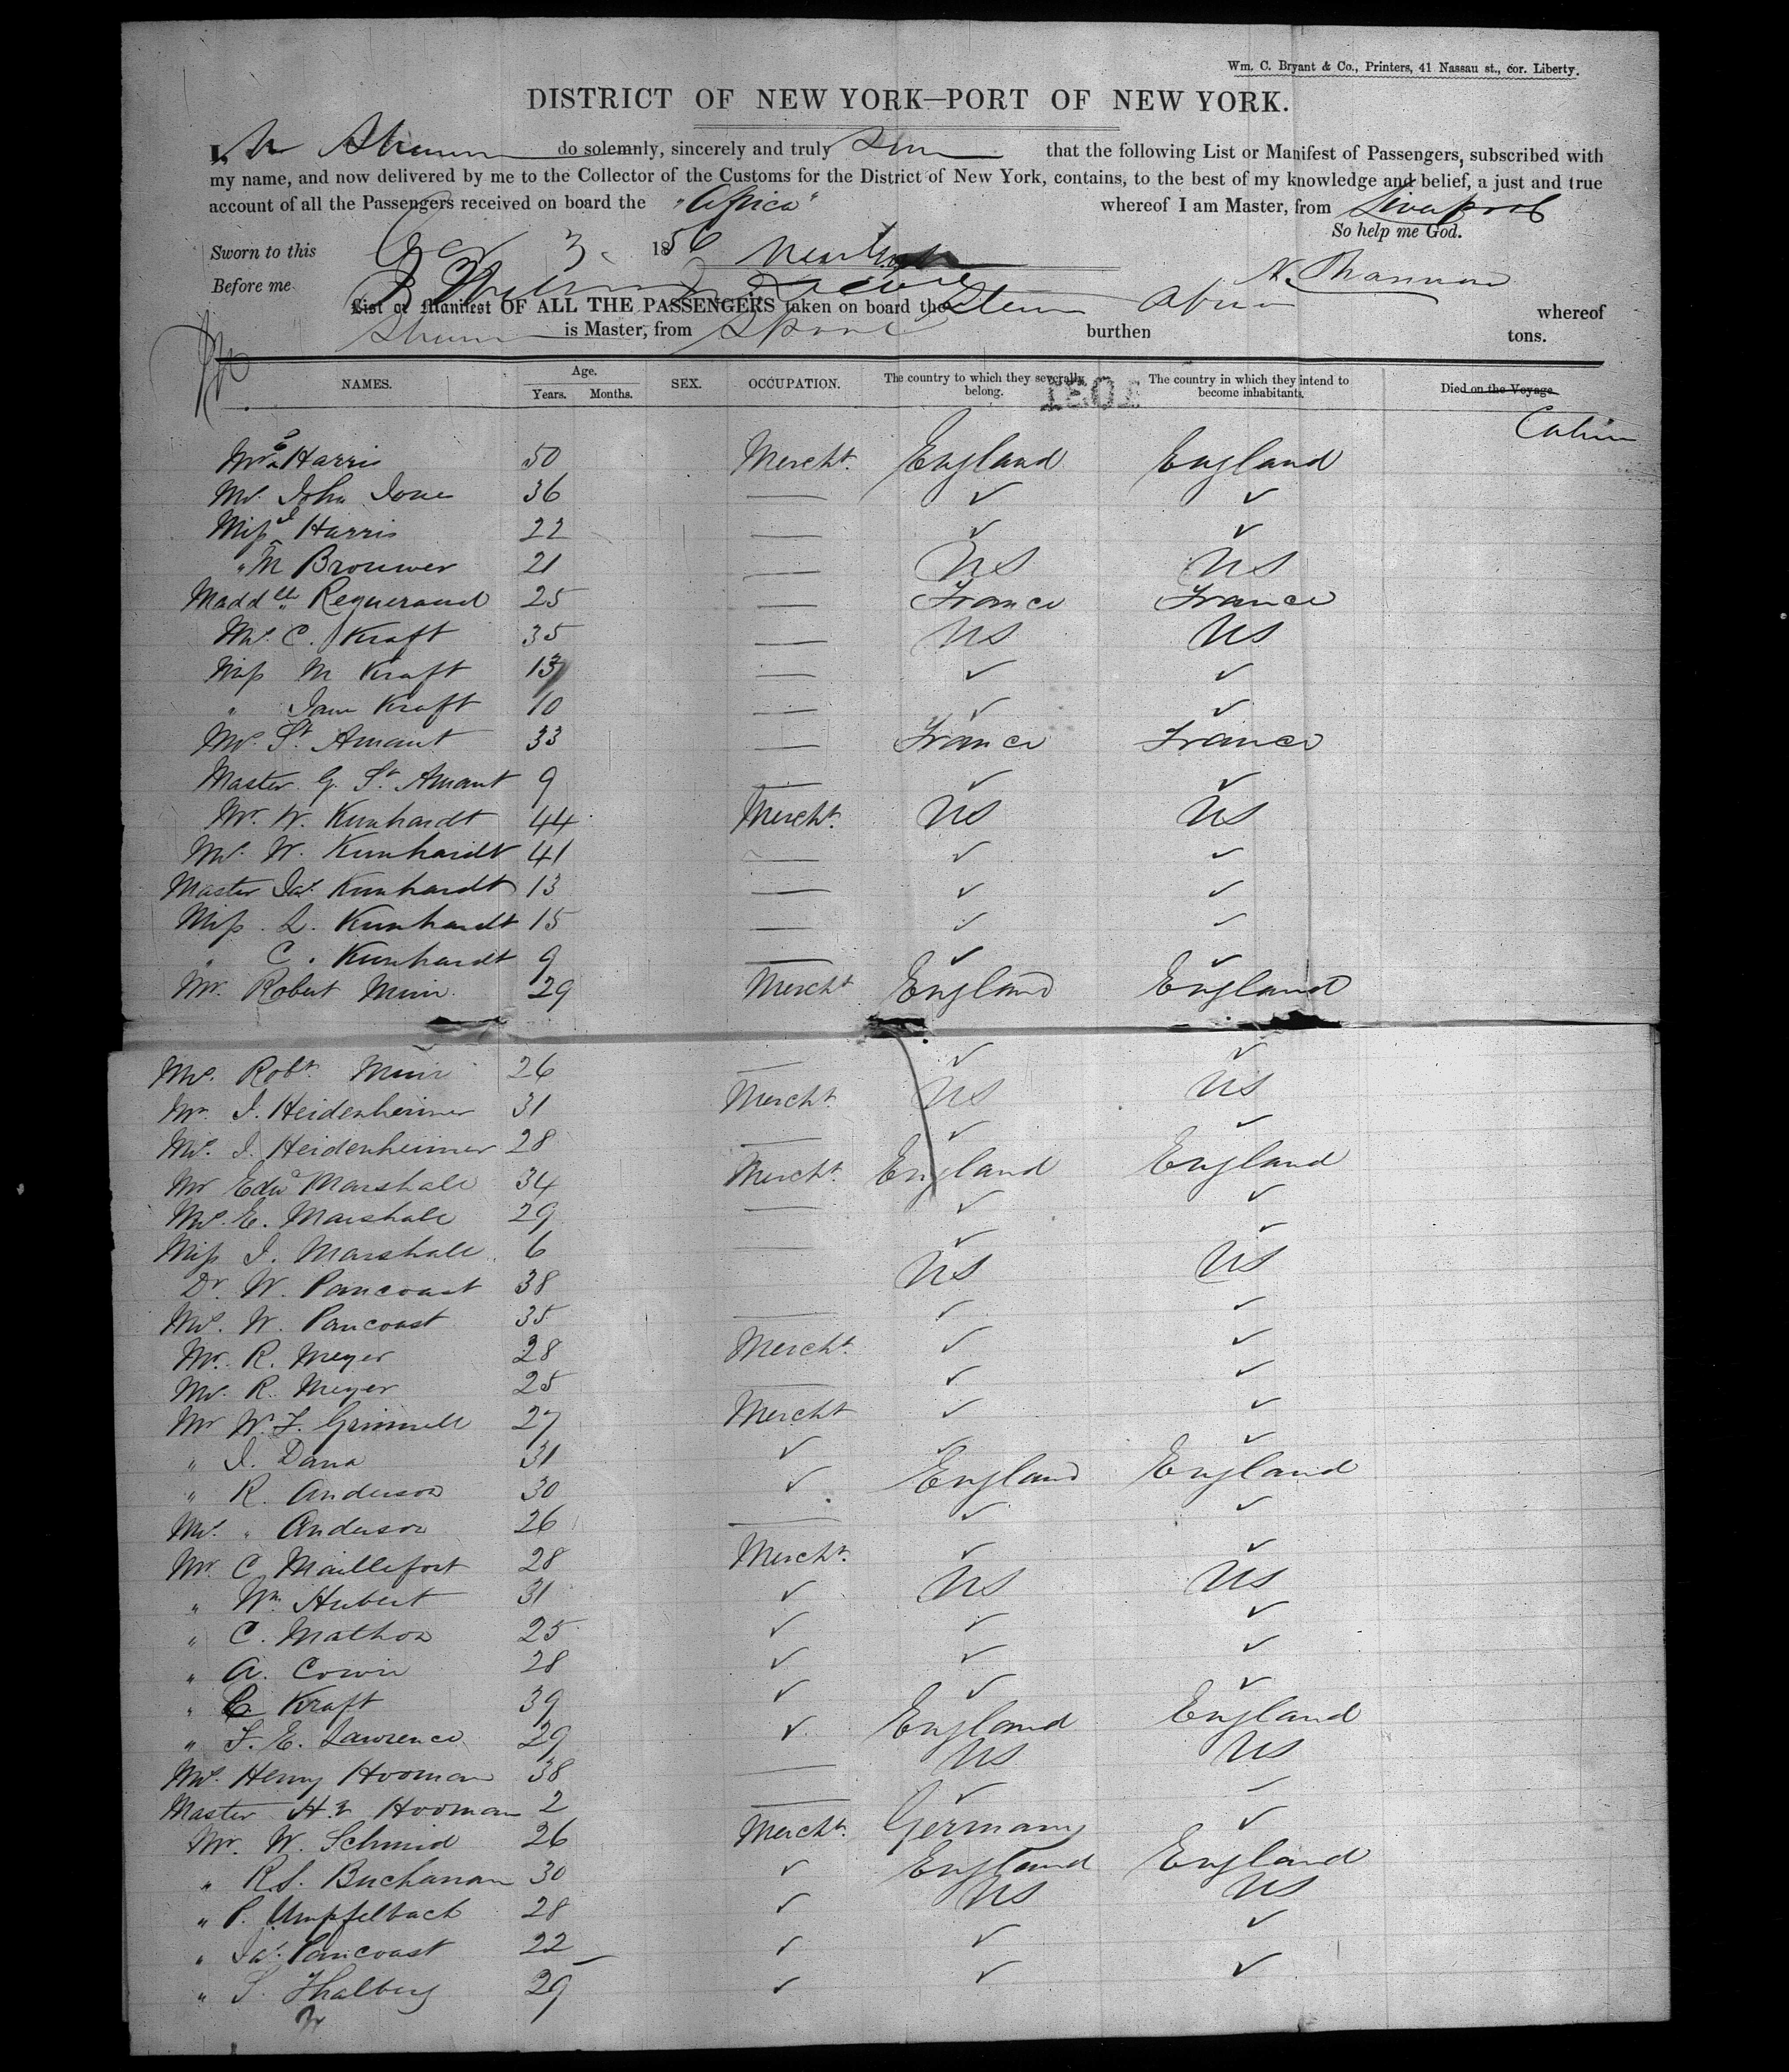 Wm. C. Bryant & Co., Printers, 41 Nassau st., cor. Liberty.
DISTRICT OF NEW YORK—PORT OF NEW YORK.
I, do solemnly, sincerely and truly that the following List or Manifest of Passengers, subscribed with
my name, and now delivered by me to the Collector of the Customs for the District of New York, contains, to the best of my knowledge and belief, a just and true
account of all the Passengers received on board the "Africa" whereof I am Master, from Liverpool
So help me God.
Sworn to this 3 1856
Before me
List or Manifest OF ALL THE PASSENGERS taken on board the whereof
is Master, from burthen tons.
NAMES. Age. Years. Months. SEX. OCCUPATION. The country to which they severally belong. The country in which they intend to become inhabitants. Died on the Voyage.
1301
Harris 50 Mercht. England England
Mrs. John 36 — ✓ ✓
Miss Harris 22 — ✓ ✓
" M Brouwer 21 — US US
Madd lle Requeraud 25 — France France
Mrs. C. Kraft 35 — US US
Miss M Kraft 13 — ✓ ✓
" Jane Kraft 10 — ✓ ✓
Mrs. St. Amant 33 — France France
Master G. St. Amant 9 — ✓ ✓
Mr. W. Kunhardt 44 Mercht. US US
Mrs. W. Kunhardt 41 — ✓ ✓
Master Jas. Kunhardt 13 — ✓ ✓
Miss L. Kunhardt 15 — ✓ ✓
" C. Kunhardt 9 — ✓ ✓
Mr. Robert Muir 29 Mercht England England
Mrs. Robt. Muir 26 — ✓ ✓
Mr. I. Heidenheimer 31 Mercht. US US
Mrs. I. Heidenheimer 28 — ✓ ✓
Mr Edwd Marshall 34 Mercht. England England
Mrs. E. Marshall 29 — ✓ ✓
Miss I. Marshall 6 — ✓ ✓
Dr. W. Pancoast 38 US US
Mrs. W. Pancoast 35 — ✓ ✓
Mr. R. Meyer 28 Mercht. ✓ ✓
Mrs. R. Meyer 25 — ✓ ✓
Mr W. F. Grinnell 27 Mercht ✓ ✓
" I. Dana 31 ✓ ✓ ✓
" R. Anderson 30 ✓ England England
Mrs. " Anderson 26 — ✓ ✓
Mr. C Maillefort 28 Mercht. ✓ ✓
" Wm. Hubert 31 ✓ US US
" C. Mathon 25 ✓ ✓ ✓
" A. Cowie 28 ✓ ✓ ✓
" C Kraft 39 ✓ ✓ ✓
" F. E. Lawrence 29 ✓ England England
Mrs. Henry Hooman 38 — US US
Master Hooman 2 — ✓ ✓
Mr. W. Schmid 26 Mercht. Germany ✓
" R. S. Buchanan 30 ✓ England England
" P. Umpfelbach 28 ✓ US US
" Jas. Pancoast 22 ✓ ✓ ✓
" S. Thalberg 29 ✓ ✓ ✓